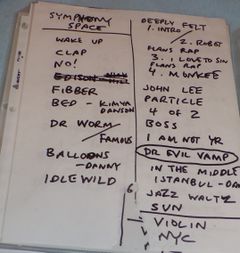 SYMPHONY
SPACE
WAKE UP
CLAP
NO!
FIBBER
BED - KIMYA
DAWSON
DR WORM
FAMOUS
BALLOONS
- DANNY
IDLEWILD
DEEPLY FELT
1. INTRO
2. ROBOT
FLANS RAP
3. I LOVE TO SIN
FLANS RAP
4. MONKEE
JOHN LEE
PARTICLE
4 OF 2
BOSS
I AM NOT YR
DR EVIL VAMP
IN THE MIDDLE
ISTANBUL - DAN
6
JAZZ WALTZ
SUN
VIOLIN
NYC